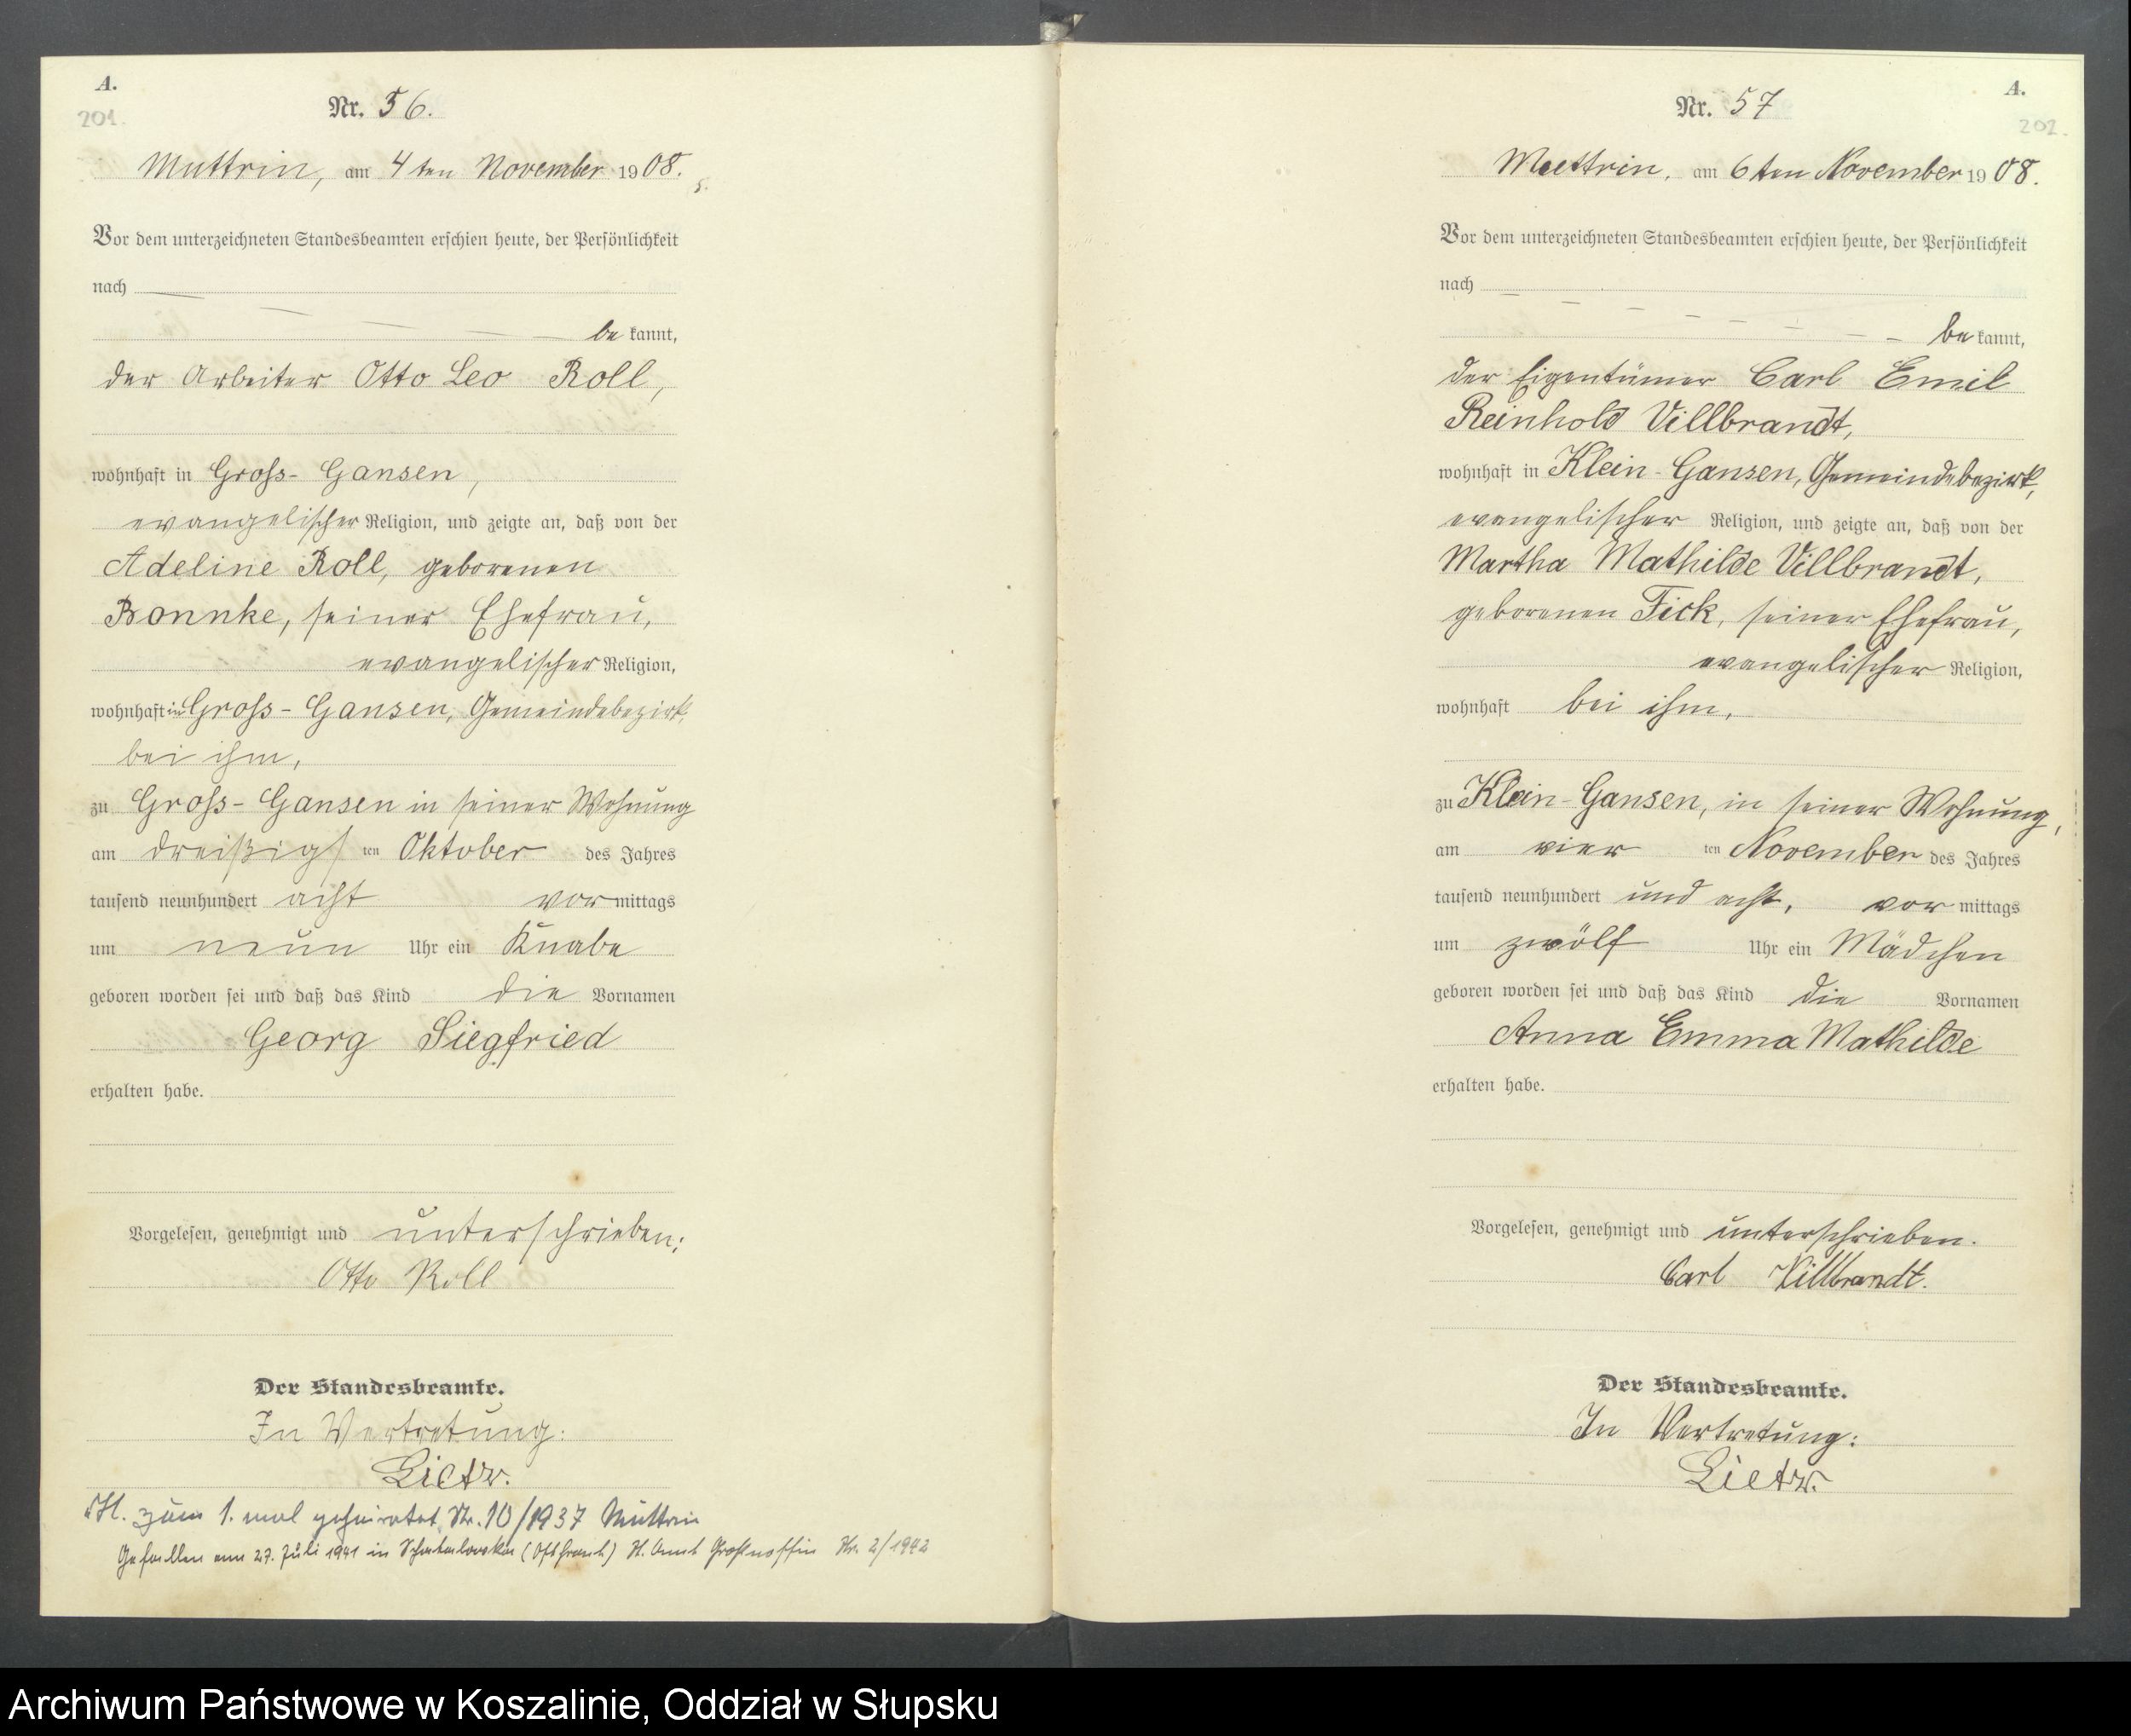 A.
201.
Nr. 56.
Muttrin, am 4ten November 1908.
Vor dem unterzeichneten Standesbeamten erschien heute, der Persönlichkeit
nach
be kannt,
der Arbeiter Otto Leo Roll,
wohnhaft in Gross-Gansen,
evangelischer Religion, und zeigte an, daß von der
Adeline Roll, geborenen
Bonnke, seiner Ehefrau,
evangelischer Religion,
wohnhaft in Gross-Gansen, Gemeindebezirk,
bei ihm,
zu Gross-Gansen in seiner Wohnung
am dreißigs ten Oktober des Jahres
tausend neunhundert acht vor mittags
um neun Uhr ein Knabe
geboren worden sei und daß das Kind die Vornamen
Georg Siegfried
erhalten habe.
Vorgelesen, genehmigt und unterschrieben:
Otto Roll
Der Standesbeamte.
In Vertretung:
Lietz.
H. zum 1. mal geheiratet Nr. 10/1937 Muttrin
Gefallen am 27. Juli 1941 in (Ostfront) Nr. 2/1942
A.
202.
Nr. 57
Muttrin, am 6ten November 1908.
Vor dem unterzeichneten Standesbeamten erschien heute, der Persönlichkeit
nach
be kannt,
der Eigentümer Carl Emil
Reinhold Villbrandt,
wohnhaft in Klein-Gansen, Gemeindebezirk,
evangelischer Religion, und zeigte an, daß von der
Martha Mathilde Villbrandt,
geborenen Fick, seiner Ehefrau,
evangelischer Religion,
wohnhaft bei ihm,
zu Klein-Gansen, in seiner Wohnung,
am vier ten November des Jahres
tausend neunhundert und acht, vor mittags
um zwölf Uhr ein Mädchen
geboren worden sei und daß das Kind die Vornamen
Anna Emma Mathilde
erhalten habe.
Vorgelesen, genehmigt und unterschrieben.
Carl Villbrandt.
Der Standesbeamte.
In Vertretung:
Lietz.
Archiwum Państwowe w Koszalinie, Oddział w Słupsku